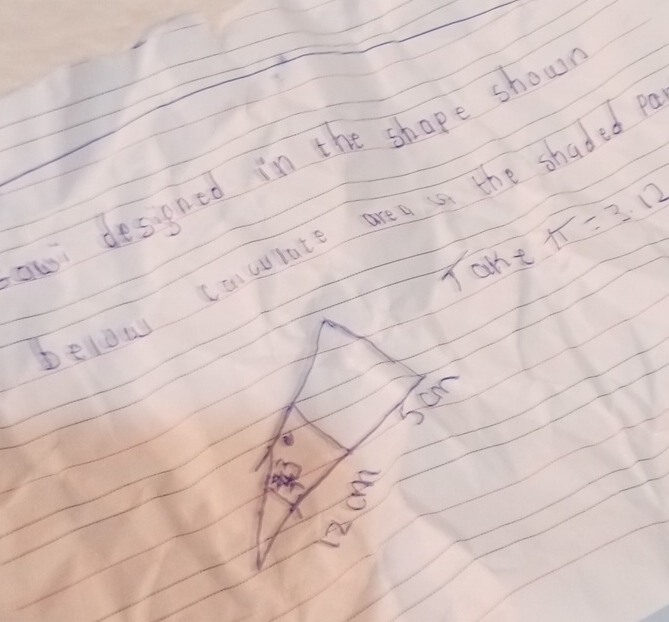 designed in the shape shown
below calculate area of the shaded
Take π = 3.12
5cm
12 cm